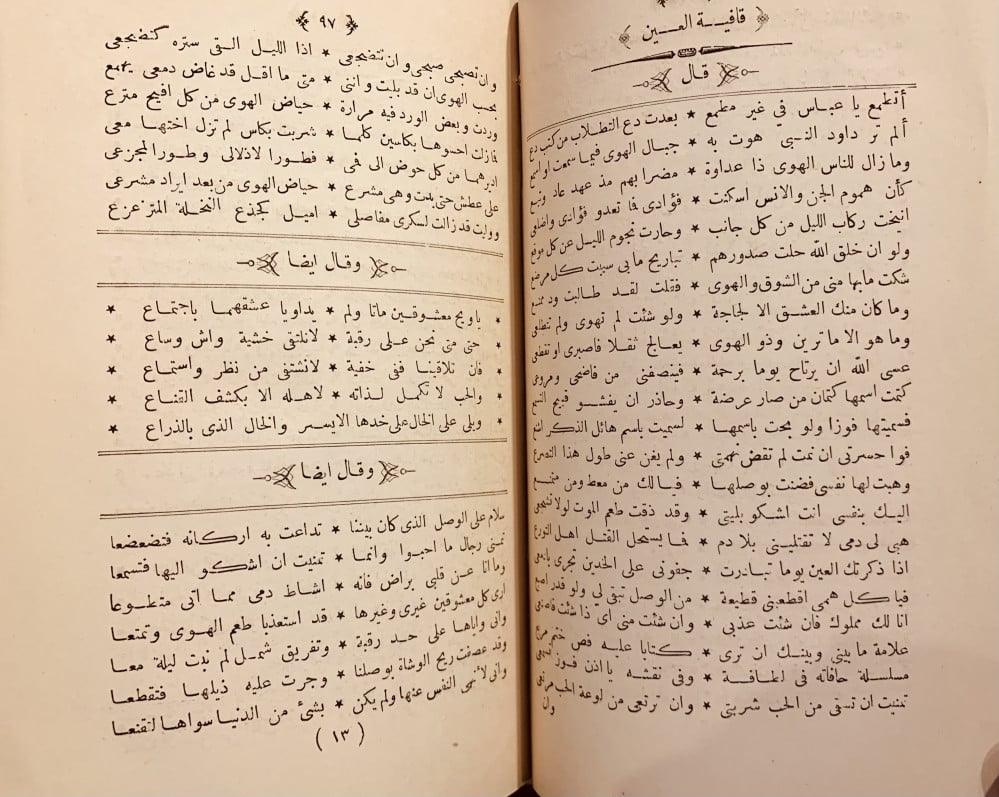 قافيــة العــين
قال
أتطمع يا عباس في غير مطمع ★ بعدت دع التطلاب من كثب دع
ألم تر داود النبيّ هوت به ★ حبال الهوى فيما سمعت او اسمع
وما زال للناس الهوى ذا عداوة ★ مضرا بهم مذ عهد عاد وتبع
كأن هموم الجن والانس اسكنت ★ فؤادى فما تعدو فؤادى واضلعى
انيخت ركاب الليل من كل جانب ★ وحارت نجوم الليل عن كل موقع
ولو ان خلق الله حلت صدورهم ★ تباريح ما بى سيبت كل مرضع
شكت ما بها منى من الشوق والهوى ★ فقلت لقد طالبت ود
وما كان منك العشق الا لجاجة ★ ولو شئت لم تهوى ولم تتطلعى
وما هو الا ما ترين وذو الهوى ★ يعالج ثقلا فاصبرى او تقطعى
عسى الله ان يرتاح يوما برحمة ★ فينصفنى من فاضحى ومروعى
كتمت اسمها كتمان من صار عرضة ★ وحاذر ان يفشو قبيح
فسميتها فوزا ولو بحت باسمها ★ لسميت باسم هائل الذكر
فوا حسرتى ان نمت لم تقض نهمتى ★ ولم يغن عنى طول هذا التضرع
وهبت لها نفسى فضنت بوصلها ★ فيا لك من معط ومن
اليك بنفسى انت اشكو بليتى ★ وقد ذقت طعم الموت لولا تشجعى
هبى لى دمى لا تقتلينى بلا دم ★ فما يستحل القتل اهل التورع
اذا ذكرتك العين يوما تبادرت ★ جفونى على الخدين تجرى بادمعى
فيا كل همى اقطعينى قطيعة ★ من الوصل تبقى لى ولو قدر اصبع
انا لك مملوك فان شئت عذبى ★ وان شئت منى اىّ ذا شئت فاصنعى
علامة ما بينى وبينك ان ترى ★ كتابا عليه فص ختم
مسلسلة حافاته فى لطافة ★ وفى نقشه يا اذن فوز
تمنيت ان تسقى من الحب شربتى ★ وان ترتعى من لوعة الحب مرتعى
وان
٩٧
وان تصبحى صبحى وان تضجعى ★ اذا الليل القى ستره كتضجعى
بحب الهوى ان قد بليت واننى ★ متى ما اقل قد غاض دمعى
وردت وبعض الورد فيه مرارة ★ حياض الهوى من كل افيح مترع
فما زلت احسوها بكاسين كلما ★ شربت بكاس لم تزل اختها معى
اديرهما من كل حوض الى فمى ★ فطورا لاذلالى وطورا لمجزعى
على عطش حتى بدت وهى مشرع ★ حياض الهوى من بعد ايراد مشرعى
ووليت قد زالت لسكرى مفاصلى ★ اميل كجذع النخلة المتزعزع
وقال ايضا
ياويح معشوقين ماتا ولم ★ يداويا عشقهمـا باجتماع ★
حتى متى نحن على رقبة ★ لانلتقى خشية واش وساع ★
فان تلاقينا ففى خفية ★ لانشتفى من نظر واستماع ★
والحب لا تكمل لذاته ★ لاهله الا بكشف القناع ★
ويلى على الخال على خدها الايسر والخال الذى بالذراع ★
وقال ايضا
سلام على الوصل الذى كان بيننا ★ تداعت به اركانه فتضعضعا
تمنى رجال ما احبوا وانما ★ تمنيت ان اشكو اليها فتسمعا
وما انا عن قلبى براض فانه ★ اشاط دمى مما اتى متطوعا
ارى كل معشوقين غيرى وغيرها ★ قد استعذبا طعم الهوى وتمتعا
وانى واياها على حد رقبة ★ وتفريق شمل لم نبت ليلة معا
وقد عصفت ريح الوشاة بوصلنا ★ وجرت عليه ذيلها فتقطعا
وانى لأنهى النفس عنها ولم يكن ★ بشئ من الدنيا سواها لتقنعا
(١٣)